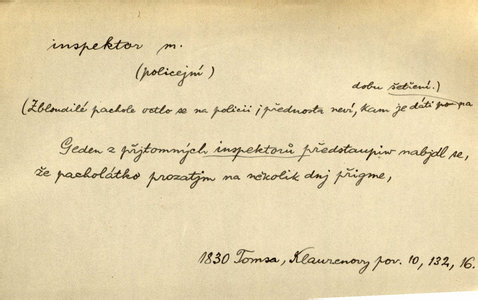 inspektor m.
(policejní)
dobu šetření.)
(Zbloudilé pachole octlo se na policii i přednosta neví, kam je dáti po
Geden z přjtomných inspektorů předstaupiw nabjdl se,
že pacholátko prozatjm na několik dnj přigme,
1830 Tomsa, Klaurenovy pov. 10, 132, 16.